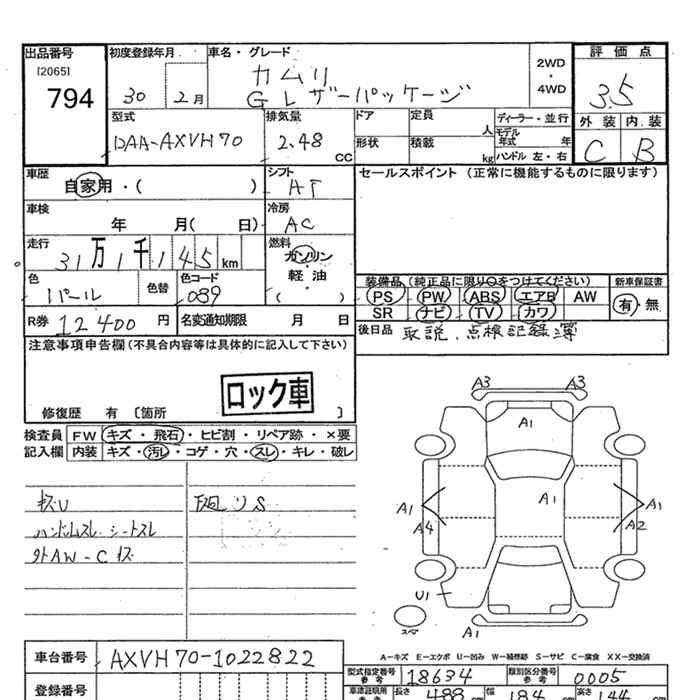 出品番号 初度登録年月 車名・グレード 2WD・4WD 評価点
[2065] カムリ 3.5
794 30 2月 Gレザーパッケージ
型式 排気量 ドア 定員 人 ディーラー・並行 外装 内装
DAA-AXVH70 2.48 CC 形状 積載 kg モデル年式 年 ハンドル 左・右 C B
車歴 シフト セールスポイント(正常に機能するものに限ります)
自家用・( ) AT
車検 冷房
年 月( 日) AC
走行 燃料
31万1千145km ガソリン
色 色替 色コード 軽油 装備品(純正品に限り○をつけてください) 新車保証書
パール 089 ( ・ ) PS PW ABS エアB AW 有・無
R券 12400円 名変通知期限 月 日 SR ナビ TV カワ
注意事項申告欄(不具合内容等は具体的に記入して下さい) 後日品 取説、点検記録簿
ロック車
修復歴 有〔箇所 〕
検査員 FW キズ・飛石・ヒビ割・リペア跡・×要
記入欄 内装 キズ・汚レ・コゲ・穴・スレ・キレ・破レ
キズU
ハンドルスレ シートスレ
外AW-Cキズ
US
A3 A3
A1
A1 A1 A1
A4 A2
U1
スペア A1
A-キズ E-エクボ U-凹み W-補修跡 S-サビ C-腐食 XX-交換済
車台番号 AXVH70-1022822
型式指定番号 参考 18634 類別区分番号 参考 0005
登録番号 車検証現用 参考 長さ 488 cm 幅 184 cm 高さ 144 cm